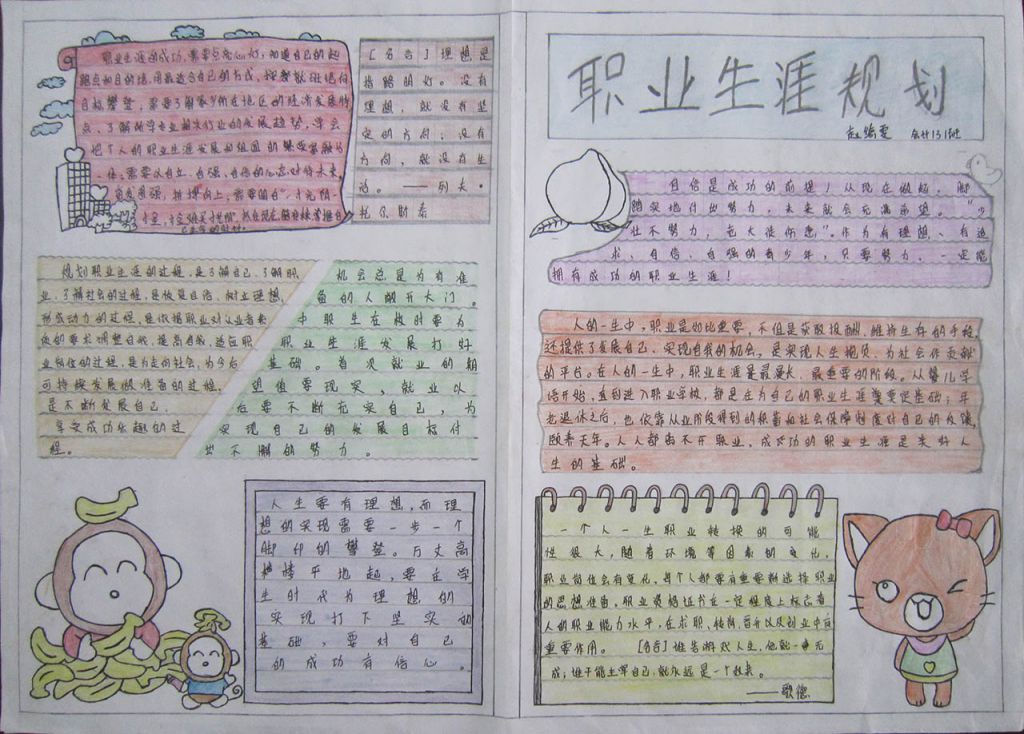 职业生涯的成功,需要点亮心灯,知道自己的起
跑点和目的地,用最适合自己的方式,探索就挺地向
目标攀登。需要了解家乡所在地区的经济发展特
点、了解所学专业相关行业的发展趋势,学会
把个人的职业生涯发展和祖国的繁荣富强结
合;需要以自立、自强、自信的心态对待未来。
【名言】理想是
指路明灯。没有
理想,就没有坚
定的方向,没有
方向,就没有生
活。——列夫·
托尔斯泰
规划职业生涯的过程,是了解自己、了解职
业、了解社会的过程,是恢复自信、树立理想、
形成动力的过程,是依据职业对从业者素
质的要求调整自我、提高自我、适应职
业岗位的过程,是为走向社会、为今后
可持续发展做准备的过程,
是不断发展自己、
享受成功乐趣的过
程。
机会总是为有准
备的人敞开大门。
中职生在校时要为
职业生涯发展打好
基础。首次就业的期
望值要现实,就业以
后要不断充实自己,为
实现自己的发展目标付
出不懈的努力。
人生要有理想,而理
想的实现需要一步一个
脚印的攀登。万丈高
楼平地起,要在学
生时代为理想的
实现打下坚实的
基础,要对自己
的成功有信心。
职业生涯规划
会计131班
自信是成功的前提!从现在做起,脚
踏实地付出努力,未来就会充满希望。“少
壮不努力,老大徒伤悲”。作为有理想、有追
求、自信、自强的青少年,只要努力,一定能
拥有成功的职业生涯!
人的一生中,职业是如此重要,不但是获取报酬、维持生存的手段,
还提供了发展自己、实现自我的机会,是实现人生抱负、为社会作贡献
的平台。在人的一生中,职业生涯是最漫长、最重要的阶段。从婴儿学
语开始,直到进入职业学校,都是在为自己的职业生涯奠定基础;年
老退休之后,也依靠从业阶段得到的积蓄和社会保障制度对自己的反馈,
颐养天年。人人都离不开职业,成功的职业生涯是美好人
生的基础。
一个人一生职业转换的可能
性很大,随着环境等因素的变化,
职业岗位会有变化,每个人都要有重新选择职业
的思想准备。职业资格证书在一定程度上标志着
人的职业能力水平,在求职、转岗、晋升以及创业中有
重要作用。【名言】谁若游戏人生,他就一事无
成;谁不能主宰自己,就永远是一个奴隶。
——歌德